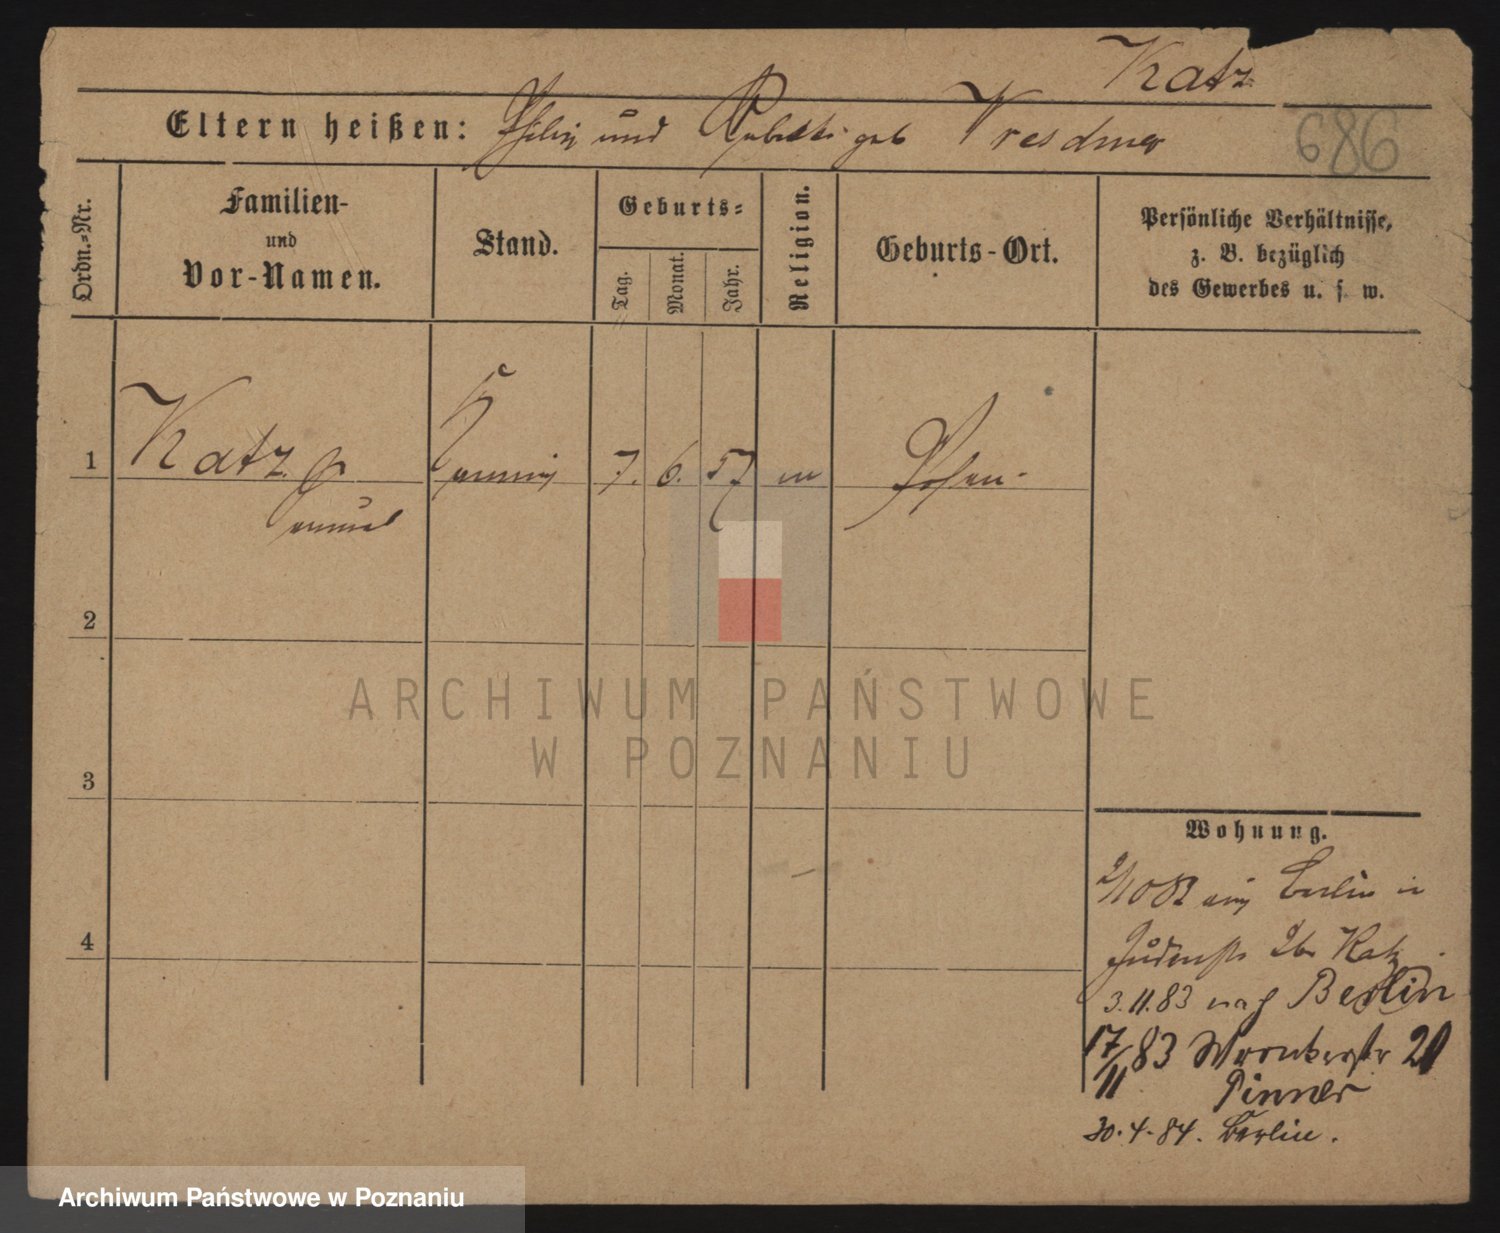 Katz
Eltern heißen: Philip und Rebekka geb Dresdner
686
Ordn.-Nr.
Familien-
und
Vor-Namen.
Stand.
Geburts-
Tag.
Monat.
Jahr.
Religion.
Geburts-Ort.
Persönliche Verhältnisse,
z. B. bezüglich
des Gewerbes u. s. w.
1
Katz
7. 6. 57 m Posen.
2
3
4
Wohnung.
2/10 82 Berlin in
Judenstr 26 Katz
3.11.83 nach Berlin
17/11 83 Wronkerstr 21
Pinner
30.4.84. Berlin.
ARCHIWUM PAŃSTWOWE
W POZNANIU
Archiwum Państwowe w Poznaniu